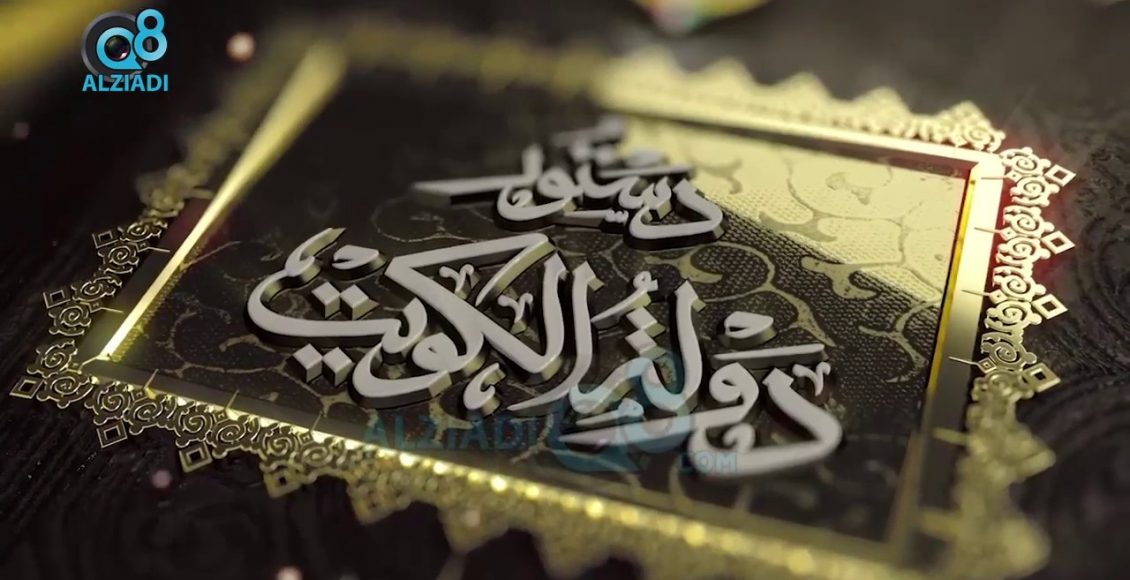 Q8
ALZIADI
دستور
دولة الكويت
ALZIADI Q8
.COM